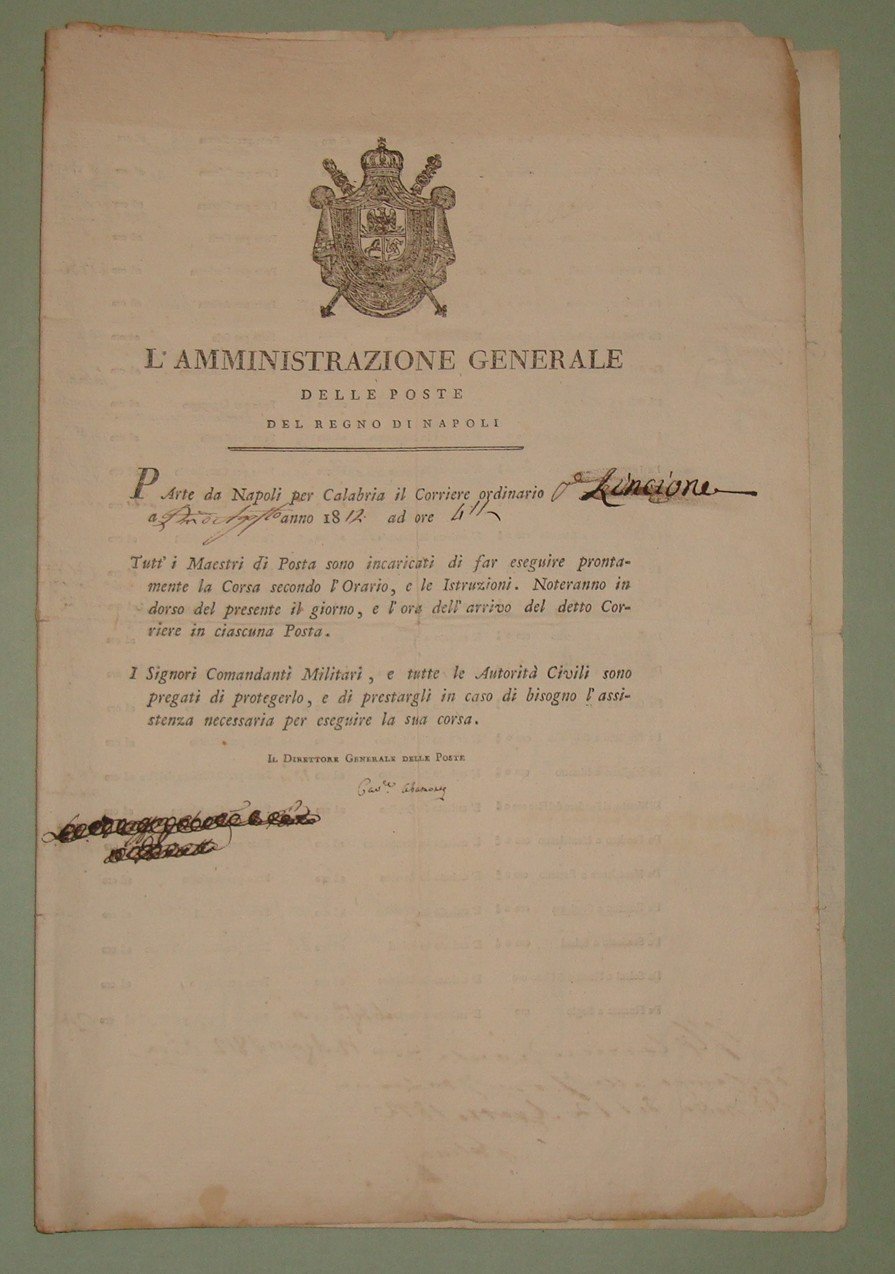 L'AMMINISTRAZIONE GENERALE
DELLE POSTE
DEL REGNO DI NAPOLI
PArte da Napoli per Calabria il Corriere ordinario Lincione
a anno 1812 ad ore 4
Tutt' i Maestri di Posta sono incaricati di far eseguire pronta-
mente la Corsa secondo l'Orario, e le Istruzioni. Noteranno in
dorso del presente il giorno, e l'ora dell'arrivo del detto Cor-
riere in ciascuna Posta.
I Signori Comandanti Militari, e tutte le Autorità Civili sono
pregati di protegerlo, e di prestargli in caso di bisogno l'assi-
stenza necessaria per eseguire la sua corsa.
IL DIRETTORE GENERALE DELLE POSTE